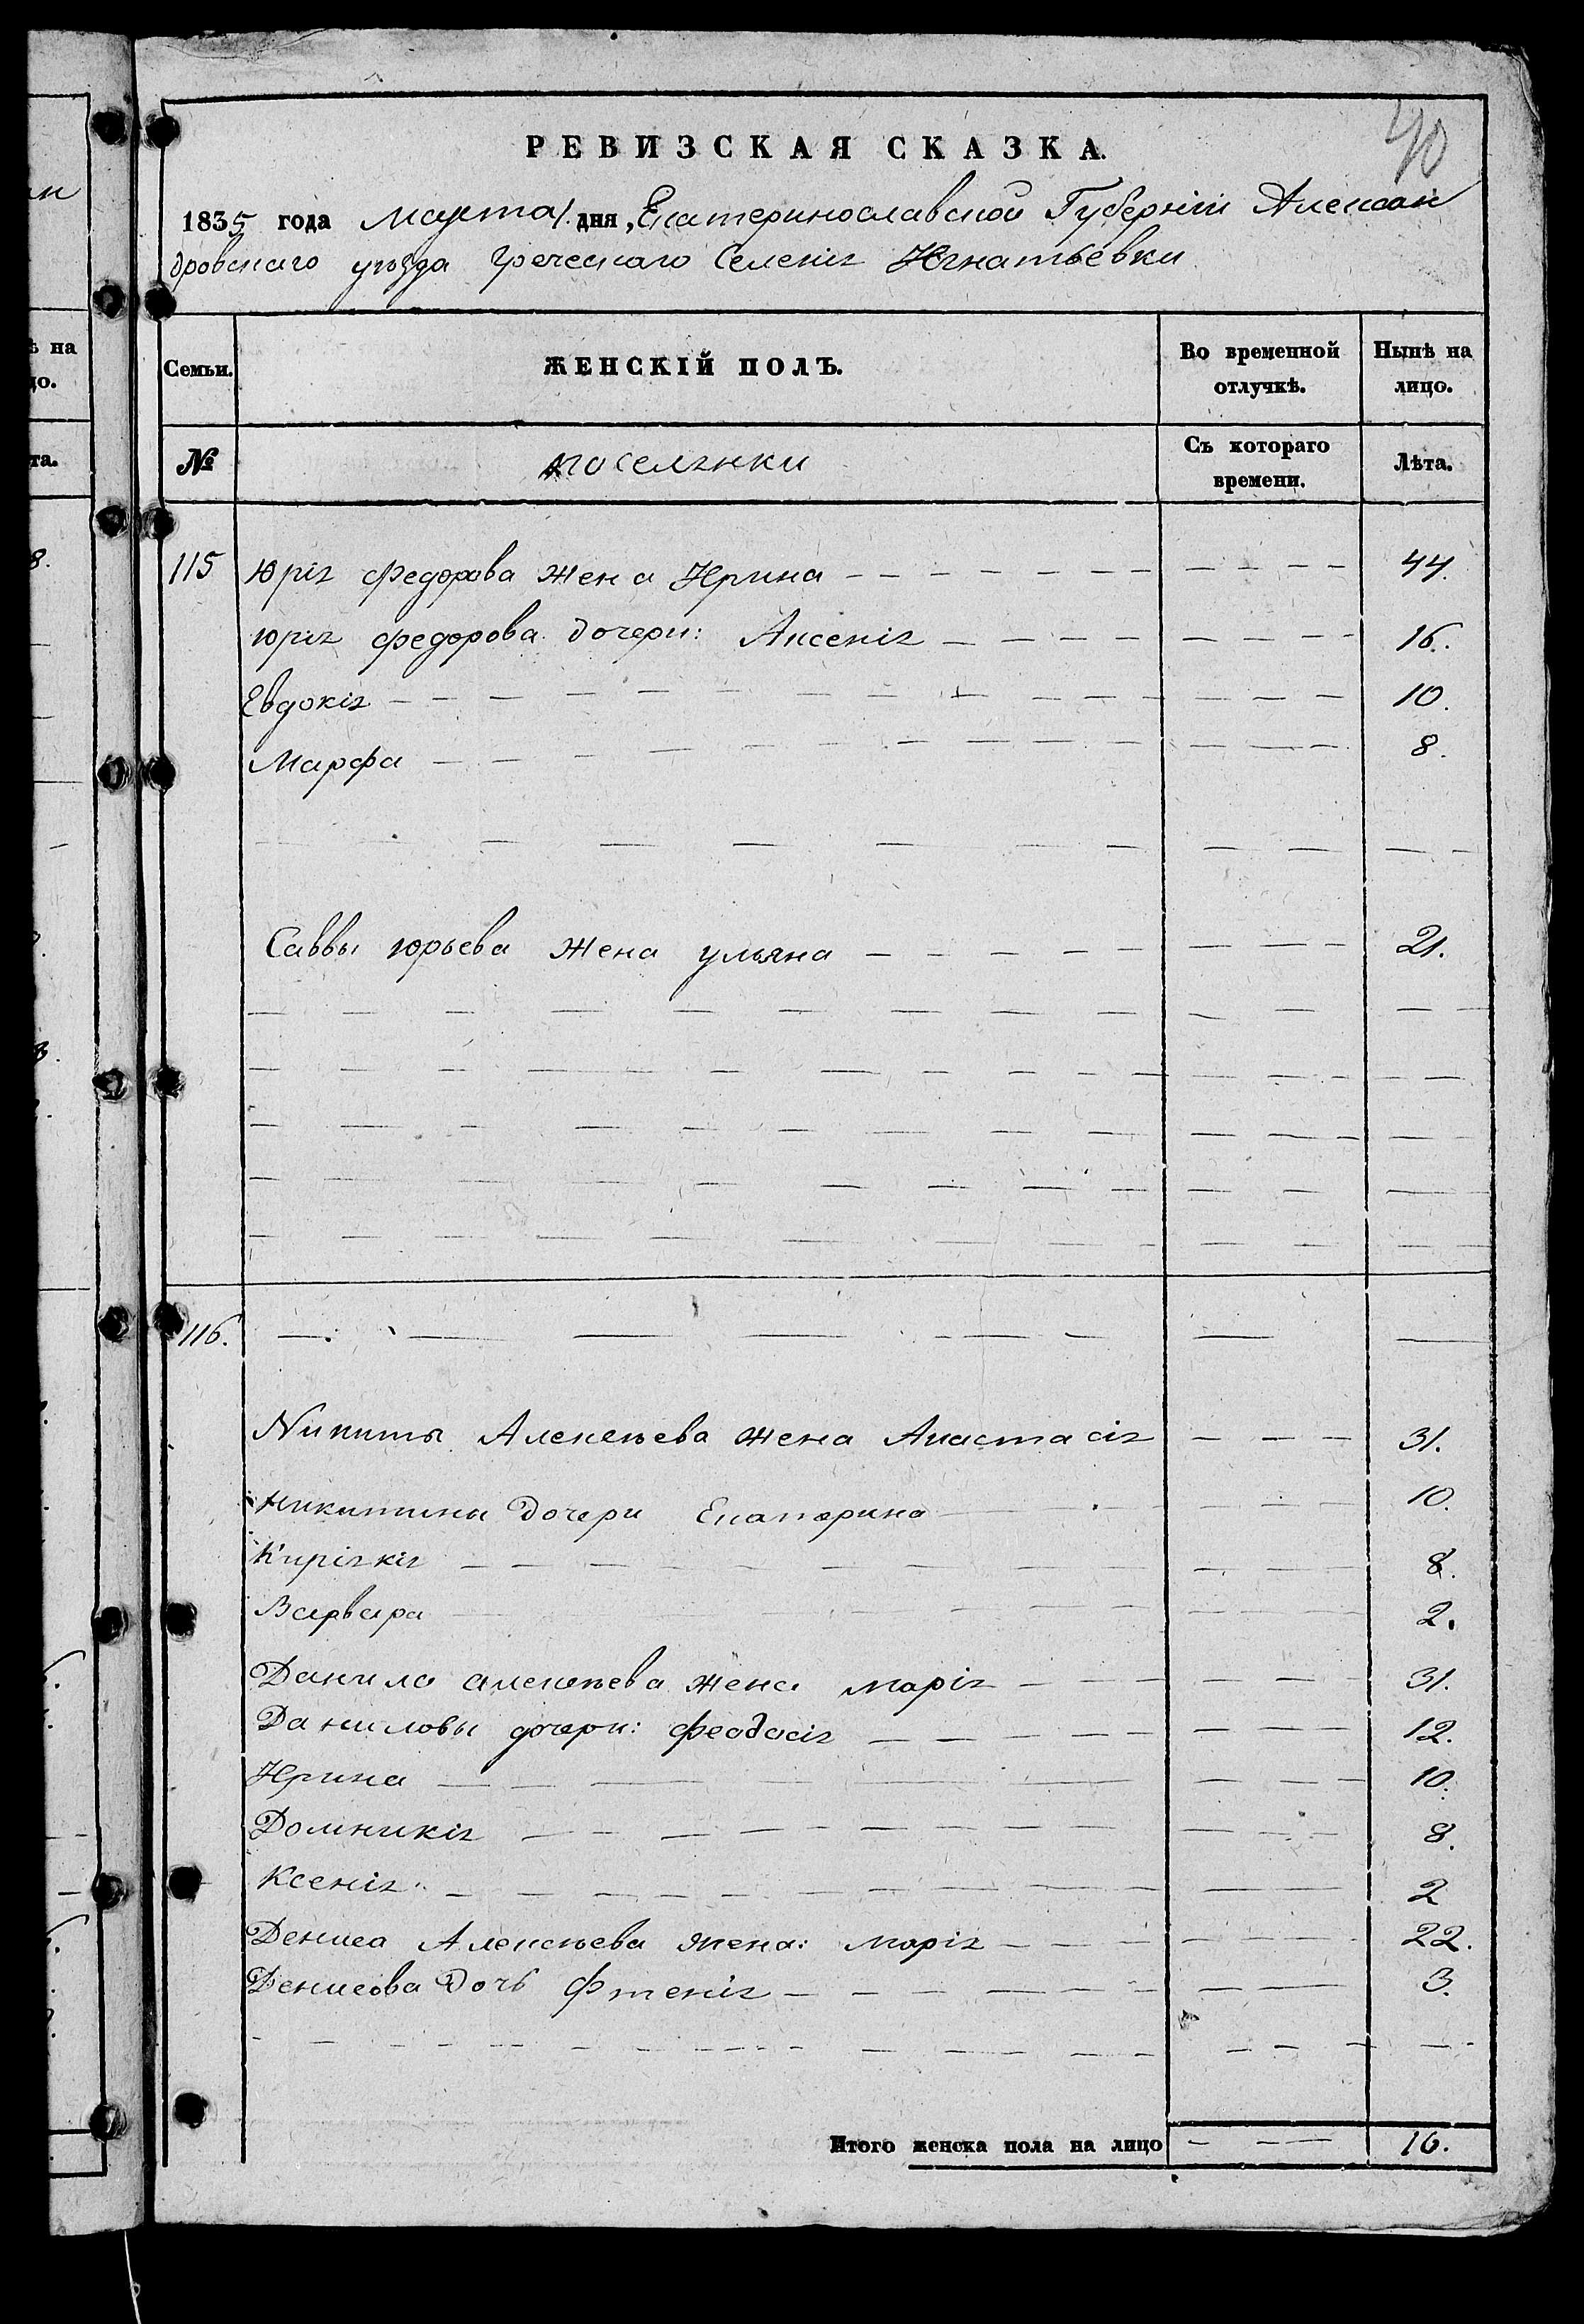 40
РЕВИЗСКАЯ СКАЗКА.
1835 года Марта 1. дня, Екатеринославской Губерніи Алексан
дровскаго уѣзда Греческаго Селенія Игнатьевки
Семьи. ЖЕНСКІЙ ПОЛЪ. Во временной отлучкѣ. Нынѣ на лицо.
№ поселянки Съ котораго времени. Лѣта.
115 Юрія Федорова жена Ирина 44.
Юрія федорова дочери: Аксенія 16.
Евдокія 10.
Марфа 8.
Саввы юрьева жена ульяна 21.
116.
Никиты Алексѣева жена Анастасія 31.
никитины дочери Екатерина 10.
Киріякія 8.
Варвара 2.
Данила алексѣева жена марія 31.
Даниловы дочери: феодосія 12.
Ирина 10.
Домникія 8.
Ксенія 2
Дениса Алексѣева жена: марія 22.
Денисова Дочь Фтенія 3.
Итого женска пола на лицо 16.
ѣ на
цо.
та.